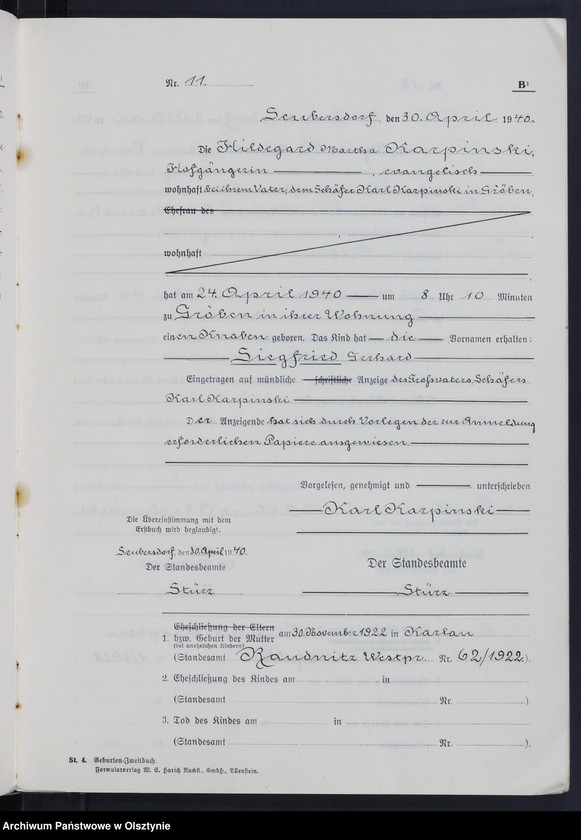 Nr. 11.
B¹
Seubersdorf, den 30. April 1940.
Die Hildegard Martha Karpinski,
Hofgängerin, evangelisch
wohnhaft bei ihrem Vater, dem Schäfer Karl Karpinski in Gröben,
Ehefrau des
wohnhaft
hat am 24. April 1940 um 8 Uhr 10 Minuten
zu Gröben in ihrer Wohnung
einen Knaben geboren. Das Kind hat die Vornamen erhalten:
Siegfried Gerhard
Eingetragen auf mündliche schriftliche Anzeige des Großvaters, Schäfers
Karl Karpinski
Der Anzeigende hat sich durch Vorlegen der zur Anmeldung
erforderlichen Papiere ausgewiesen
Vorgelesen, genehmigt und unterschrieben
Karl Karpinski
Die Übereinstimmung mit dem
Erstbuch wird beglaubigt.
Seubersdorf, den 30. April 1940.
Der Standesbeamte
Stürz
Der Standesbeamte
Stürz
Eheschließung der Eltern
1. bzw. Geburt der Mutter am 30. November 1922 in Karlau
(bei unehelichen Kindern)
(Standesamt Raudnitz Westpr. Nr. 62/1922.)
2. Eheschließung des Kindes am in
(Standesamt Nr. )
3. Tod des Kindes am in
(Standesamt Nr. ).
St. 4. Geburten-Zweitbuch.
Formularverlag W. E. Harich Nachfl., GmbH., Allenstein.
Archiwum Państwowe w Olsztynie